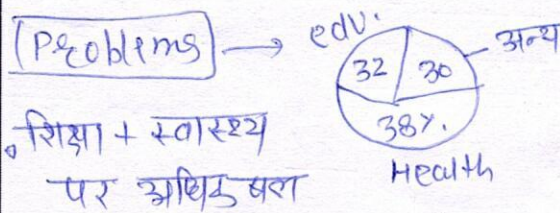 Problems → edu.
अन्य
32 30
38%.
Health
शिक्षा + स्वास्थ्य
पर अधिक बल